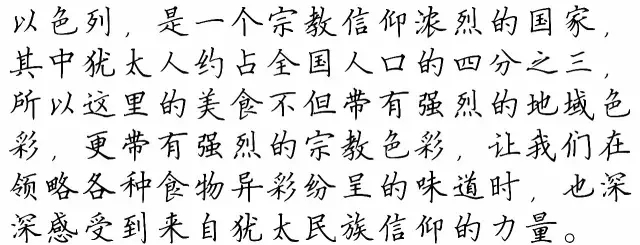 以色列，是一个宗教信仰浓烈的国家，
其中犹太人约占全国人口的四分之三，
所以这里的美食不但带有强烈的地域色
彩，更带有强烈的宗教色彩，让我们在
领略各种食物异彩纷呈的味道时，也深
深感受到来自犹太民族信仰的力量。